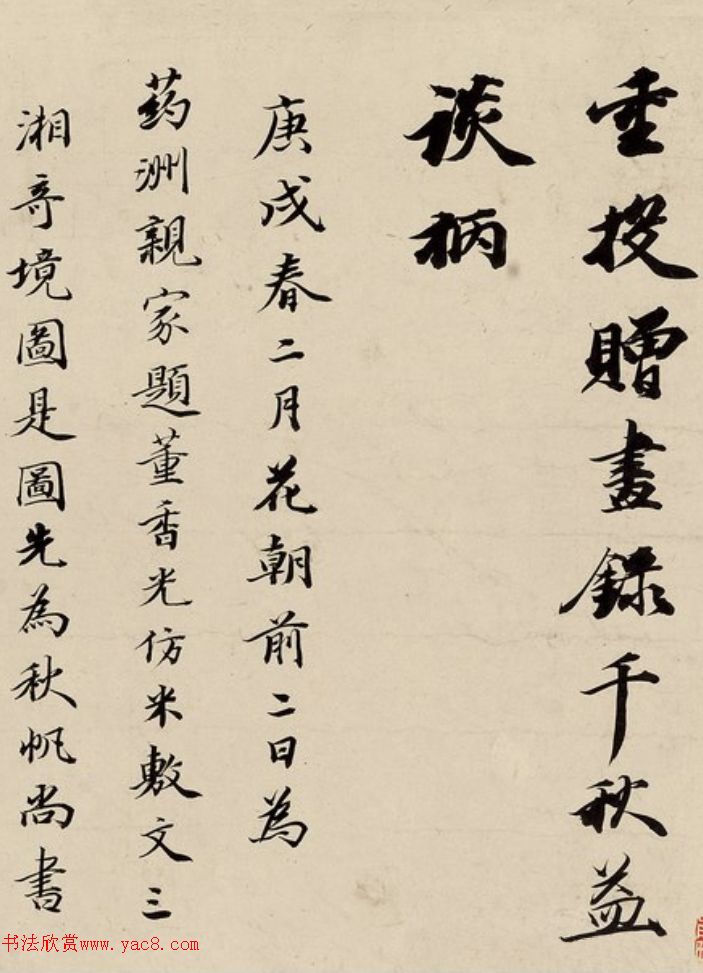 重投贈畫錄千秋益
談柄
庚戌春二月花朝前二日為
药洲親家題董香光仿米敷文三
湘奇境圖是圖先為秋帆尚書
书法欣赏www.yac8.com